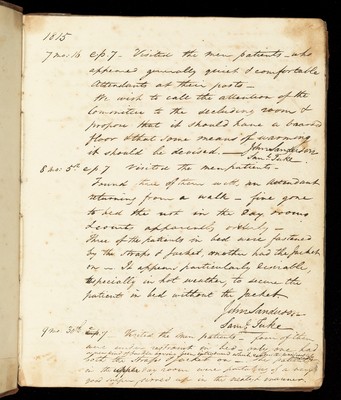 1815
7 mo: 16 cp 7 - Visited the men patients - who
appeared generally quiet & comfortable
Attendants at their posts -
We wish to call the attention of the
Committee to the secluding room &
propose that it should have a boarded
floor & that some means of warming
it should be devised. John Sanderson
Saml. Tuke.
8 mo: 5th cp 7 Visited the men patients -
Found three of them with an attendant
returning from a walk - five gone
to bed the rest in the Day rooms
& courts apparently orderly -
Three of the patients in bed were fastened
by the straps & Jacket, another had the Jacket
on - It appears particularly desirable,
especially in hot weather to secure the
patient in bed without the Jacket
John Sanderson
Saml. Tuke
9 mo: 30th cp 7 Visited the men patients - four of them
were under restraint in bed - only one had
both the straps & Jacket on - the patients
on the upper day room were partaking of a